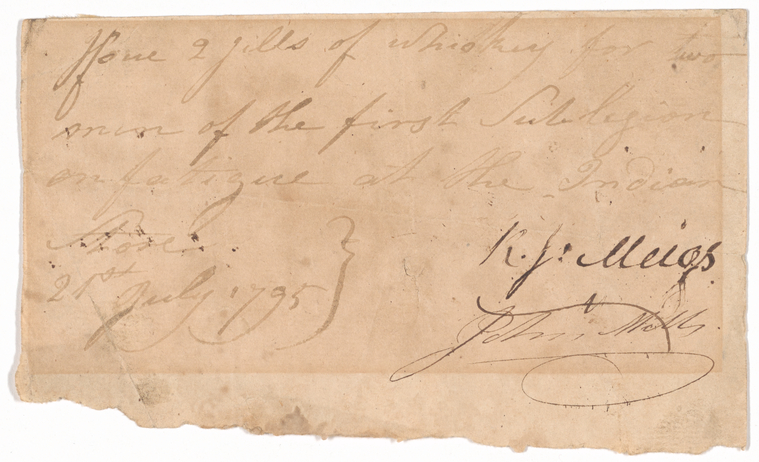 Issue 2 gills of whiskey for two
men of the first Sub legion
on fatigue at the Indian
Store
21st July 1795
R. J. Meigs
John Mills